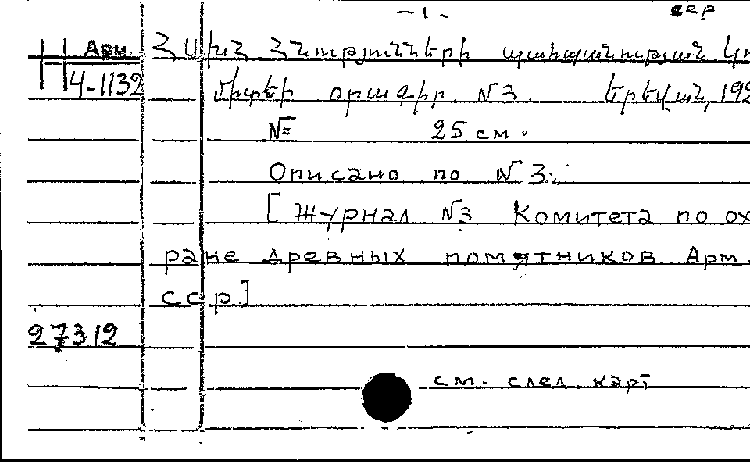 -1.
сер
Арм. ՀՍԽՀ Հնությունների պահպանության կո
Н 4-1132 միտեի օրագիր. N3. Երևան, 192
№ 25 см.
Описано по N 3.
[Журнал N3 Комитета по ох
ране древных помятников Арм.
ССР]
27312
см. след. карт